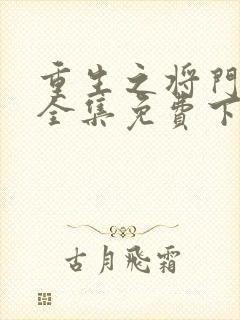 重生之将门
全集免费下
古月飛霜